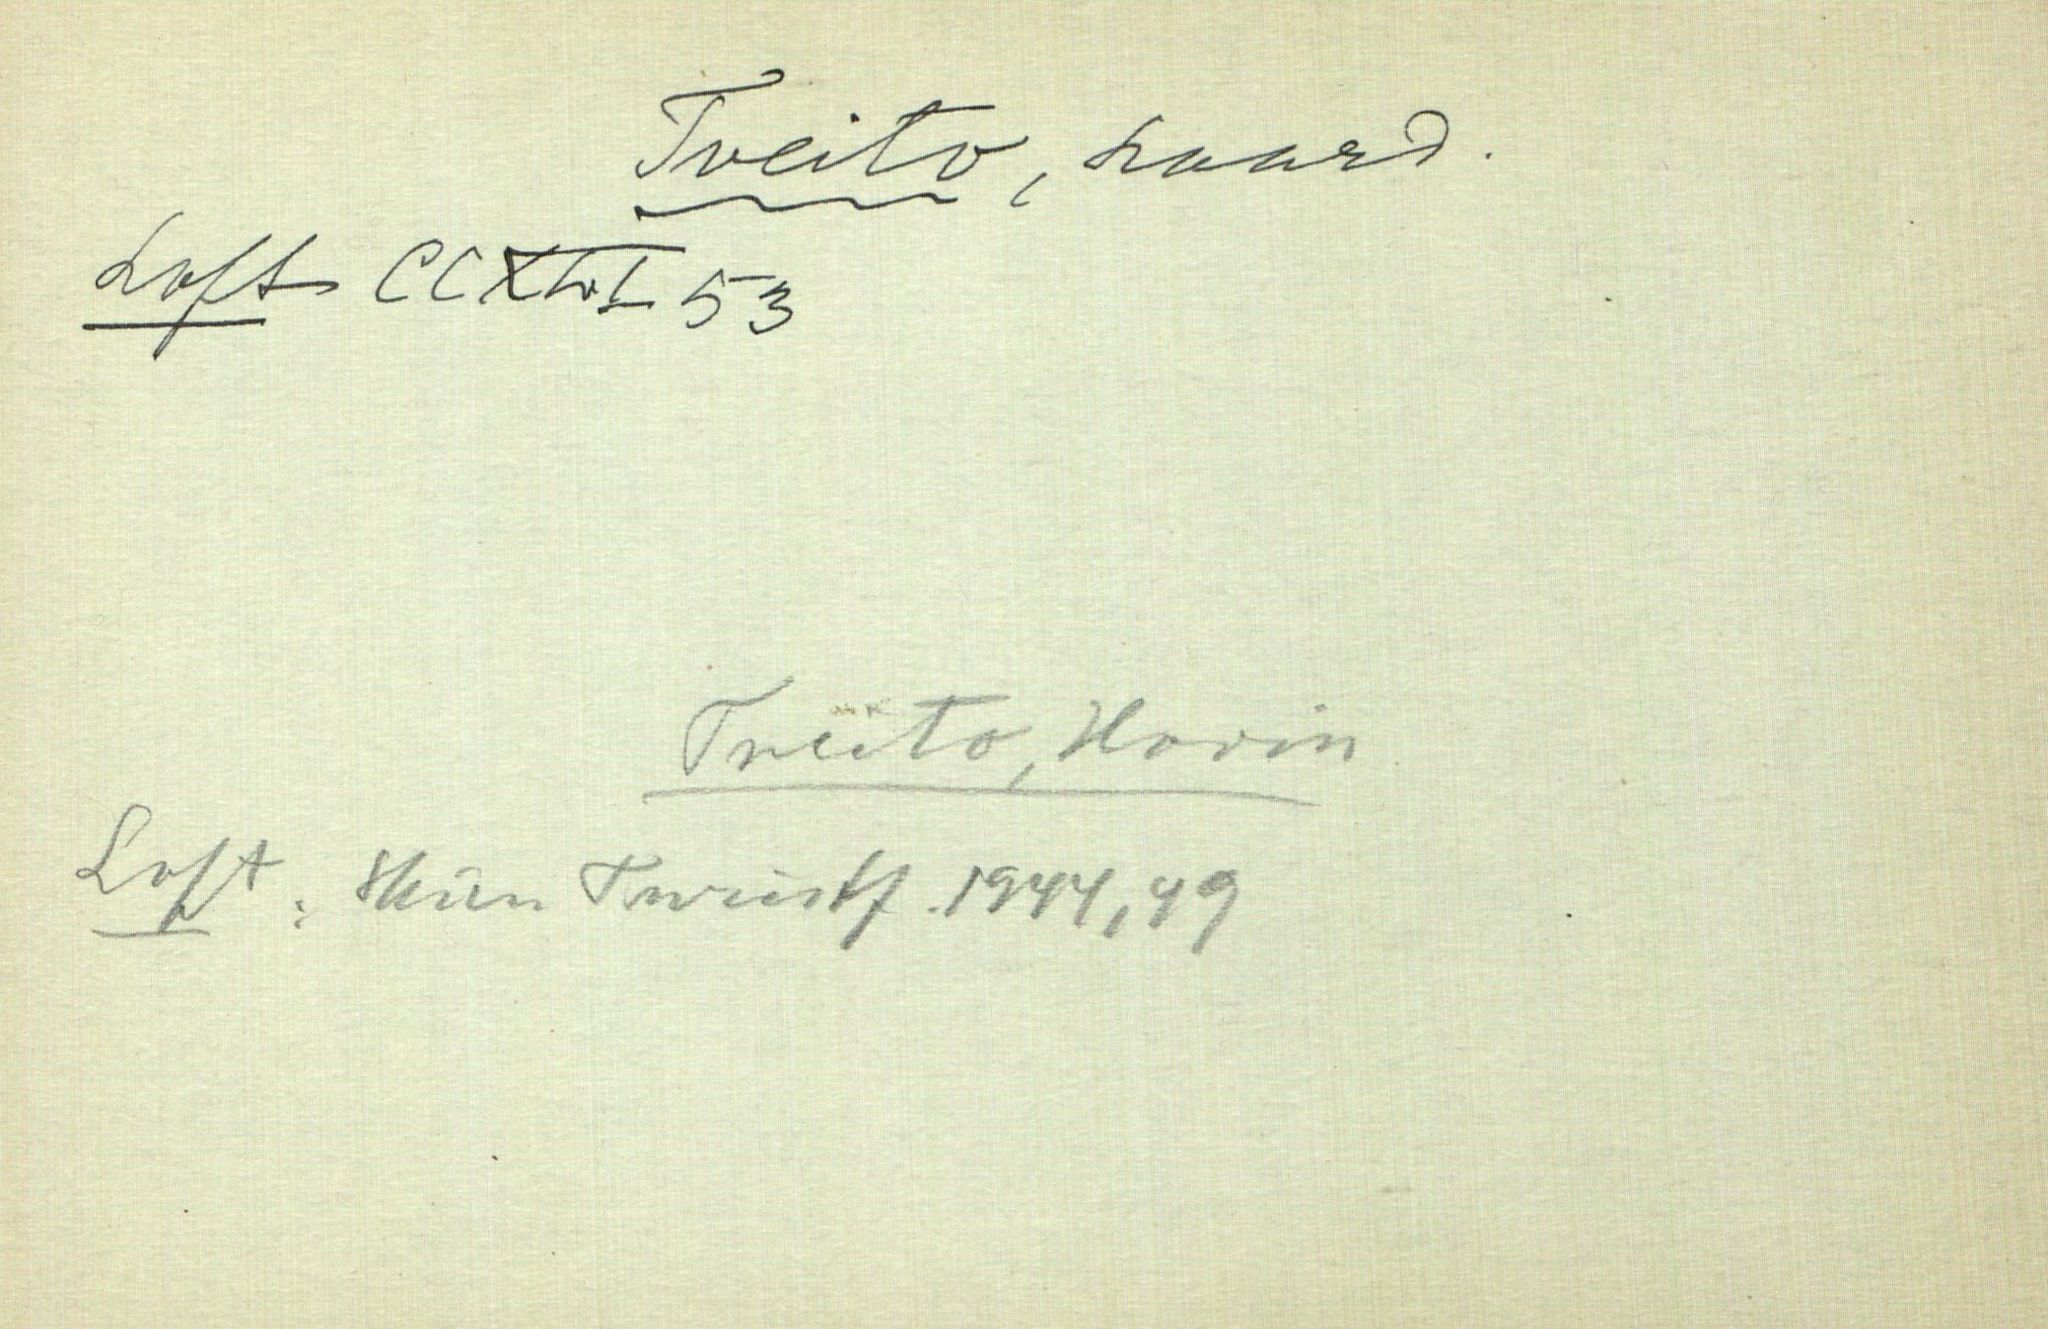 Tveito, Laard.
Loft CCXLVI 53
Tveito, Hovin
Loft : Skien Turistf. 1944, 49